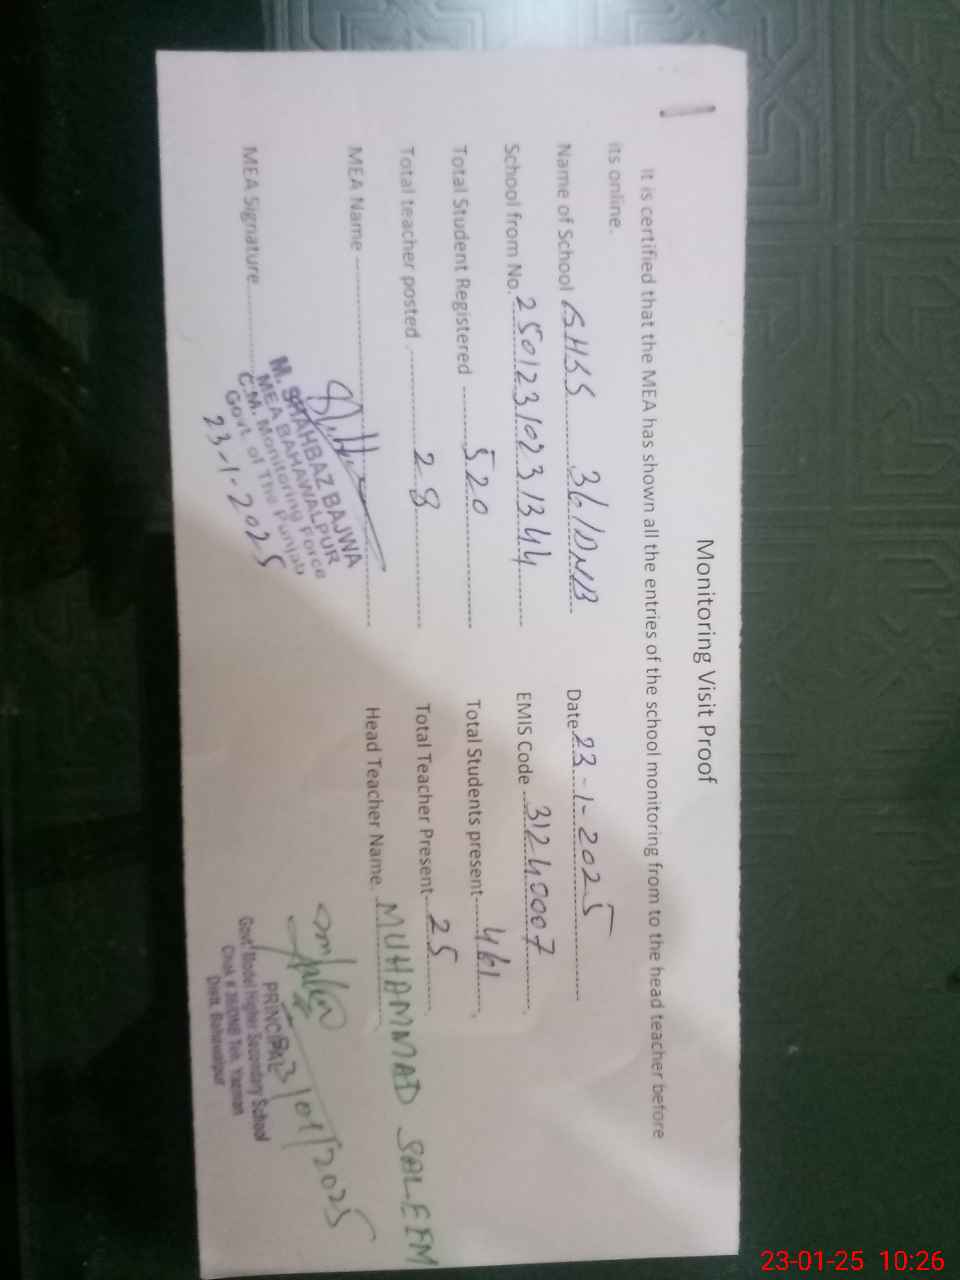 Monitoring Visit Proof
It is certified that the MEA has shown all the entries of the school monitoring from to the head teacher before
its online.
Name of School GHSS 36/DNB Date 23-1-2025
School from No. 25012310231344 EMIS Code 31240007
Total Student Registered 520 Total Students present 461
Total teacher posted 28 Total Teacher Present 25
MEA Name Head Teacher Name. MUHAMMAD SALEEM
MEA Signature
M. SHAHBAZ BAJWA
MEA BAHAWALPUR
C.M. Monitoring Force
Govt. of The Punjab
23-1-2025
PRINCIPAL
Govt Model Higher Secondary School
Chak # 36/DNB Teh. Yazman
Distt. Bahawalpur
23/01/2025
23-01-25 10:26